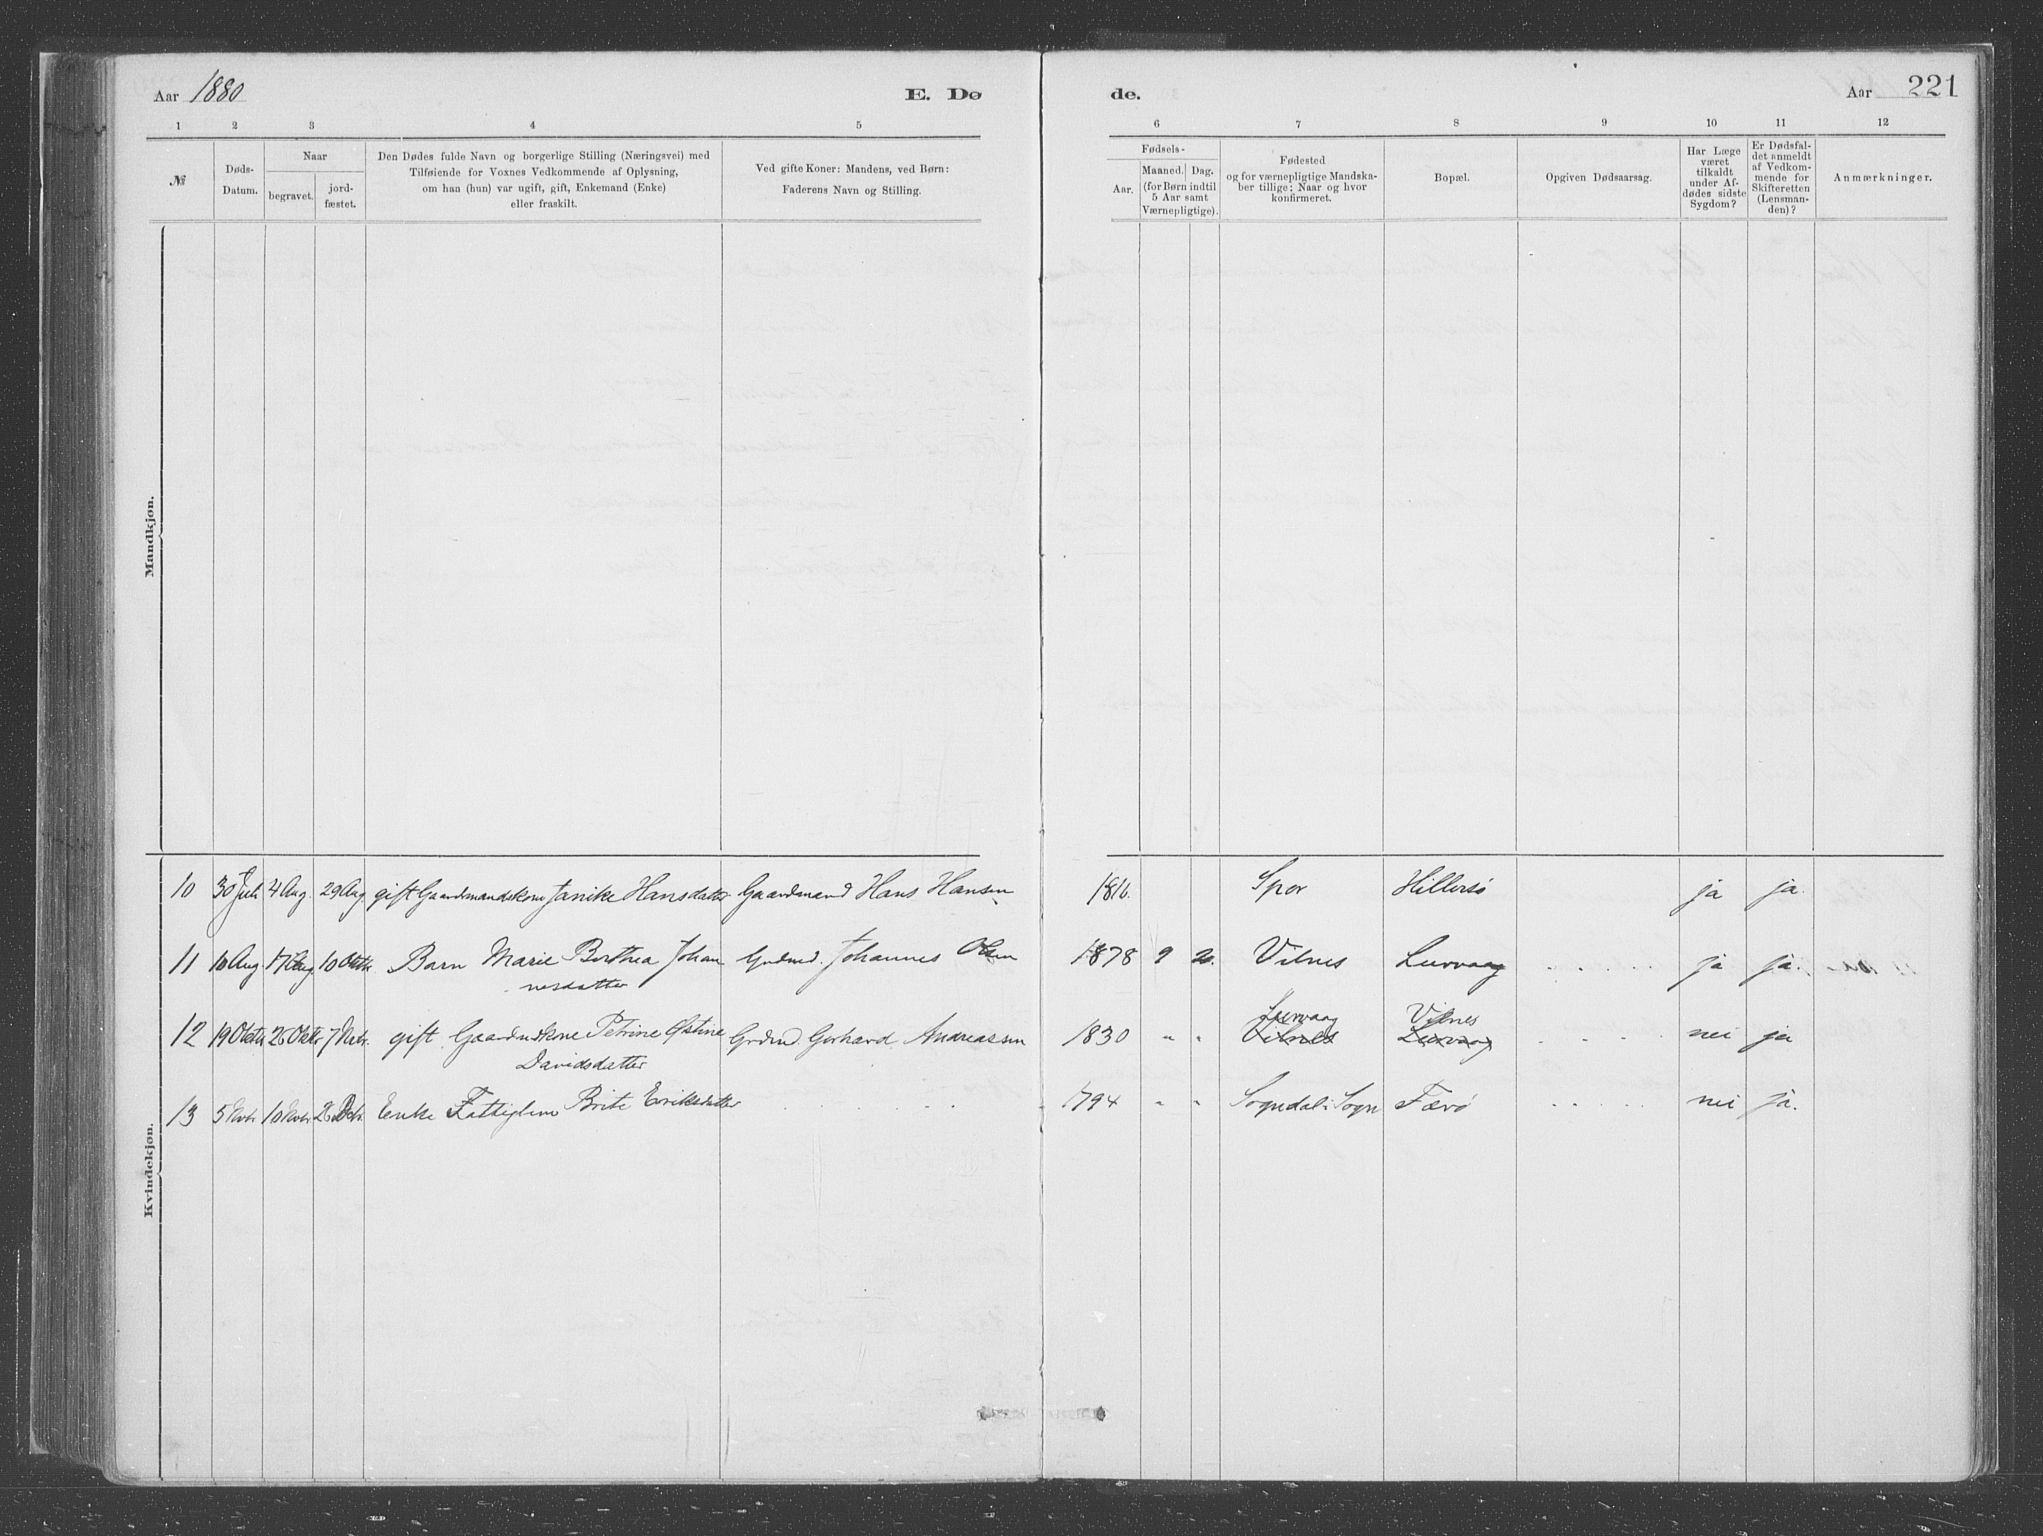 Aar 1880 E. Dø de. Aar 221
1 2 3 4 5 6 7 8 9 10 11 12
№
Døds-
Datum.
Naar
begravet.
jord-
fæstet.
Den Dødes fulde Navn og borgerlige Stilling (Næringsvei) med
Tilføiende for Voxnes Vedkommende af Oplysning,
om han (hun) var ugift, gift, Enkemand (Enke)
eller fraskilt.
Ved gifte Koner: Mandens, ved Børn:
Faderens Navn og Stilling.
Fødsels-
Aar.
Maaned. Dag.
(for Børn indtil
5 Aar samt
Værnepligtige).
Fødested
og for værnepligtige Mandska-
ber tillige: Naar og hvor
konfirmeret.
Bopæl.
Opgiven Dødsaarsag.
Har Læge
været
tilkaldt
under Af-
dødes sidste
Sygdom?
Er Dødsfal-
det anmeldt
af Vedkom-
mende for
Skifteretten
(Lensman-
den)?
Anmærkninger.
Mandkjøn.
Kvindekjøn.
10 30 Juli 4 Aug. 29 Aug. gift Gaardmandskone Janike Hansdatter Gaardmand Hans Hansen 1816. Spor Hillersø ja ja.
11 10 Aug. 17 Aug. 10 Oktbr. Barn Marie Berthea Johan Grdmd. Johannes Olsen 1878 9 20. Vilnes Lurvaag ja ja.
nesdatter
Lurvaag Vilnes
12 19 Oktbr. 26 Oktbr. 7 Novbr. gift Gaardmdskone Petrine Østine Grdmd. Gerhard Andreassen 1830 " " Vilnes Lurvaag nei ja
Davidsdatter
13 5 Novbr. 10 Novbr. 26 Decbr. Enke Fattiglem Brite Eriksdatter 1794 " " Sogndal i Sogn Færø nei ja.